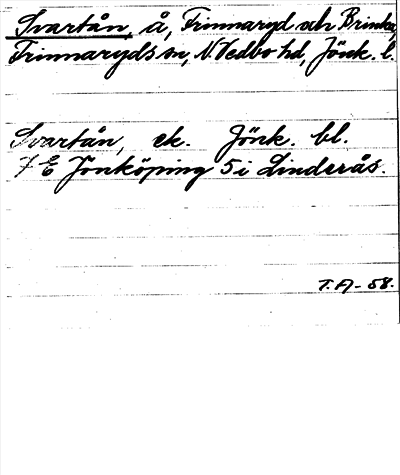 Svartån, å, Frinnaryd och Brinka,
Frinnaryds sn, N. Vedbo hd, Jönk. l.
Svartån, ek. Jönk. bl.
7 E Jönköping 5 i Linderås.
T.A-58.